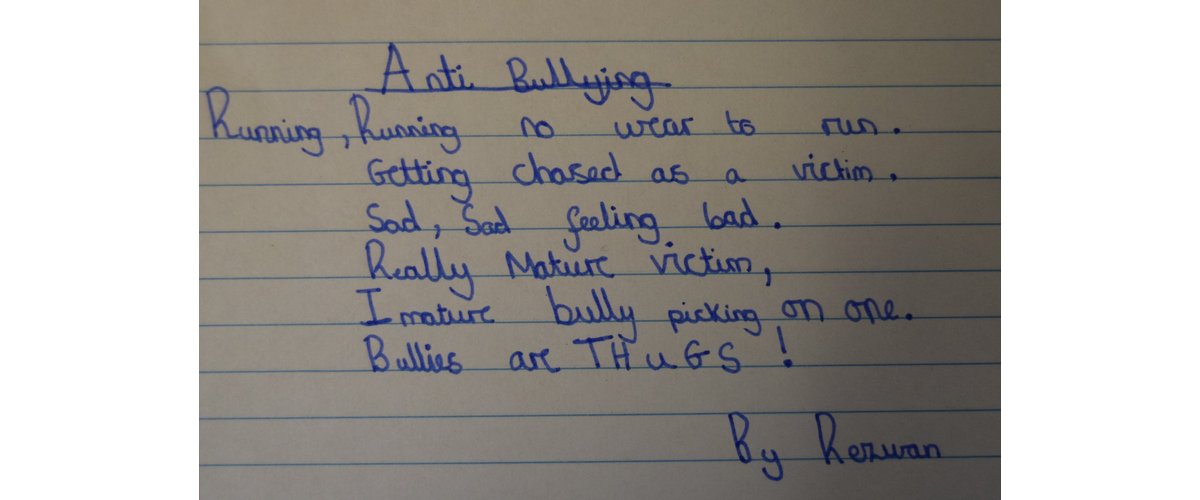 Anti Bullying
Running, Running no wear to run.
Getting chased as a victim.
Sad, Sad feeling bad.
Really Mature victim,
Imature bully picking on one.
Bullies are THuGS !
By Rezwan